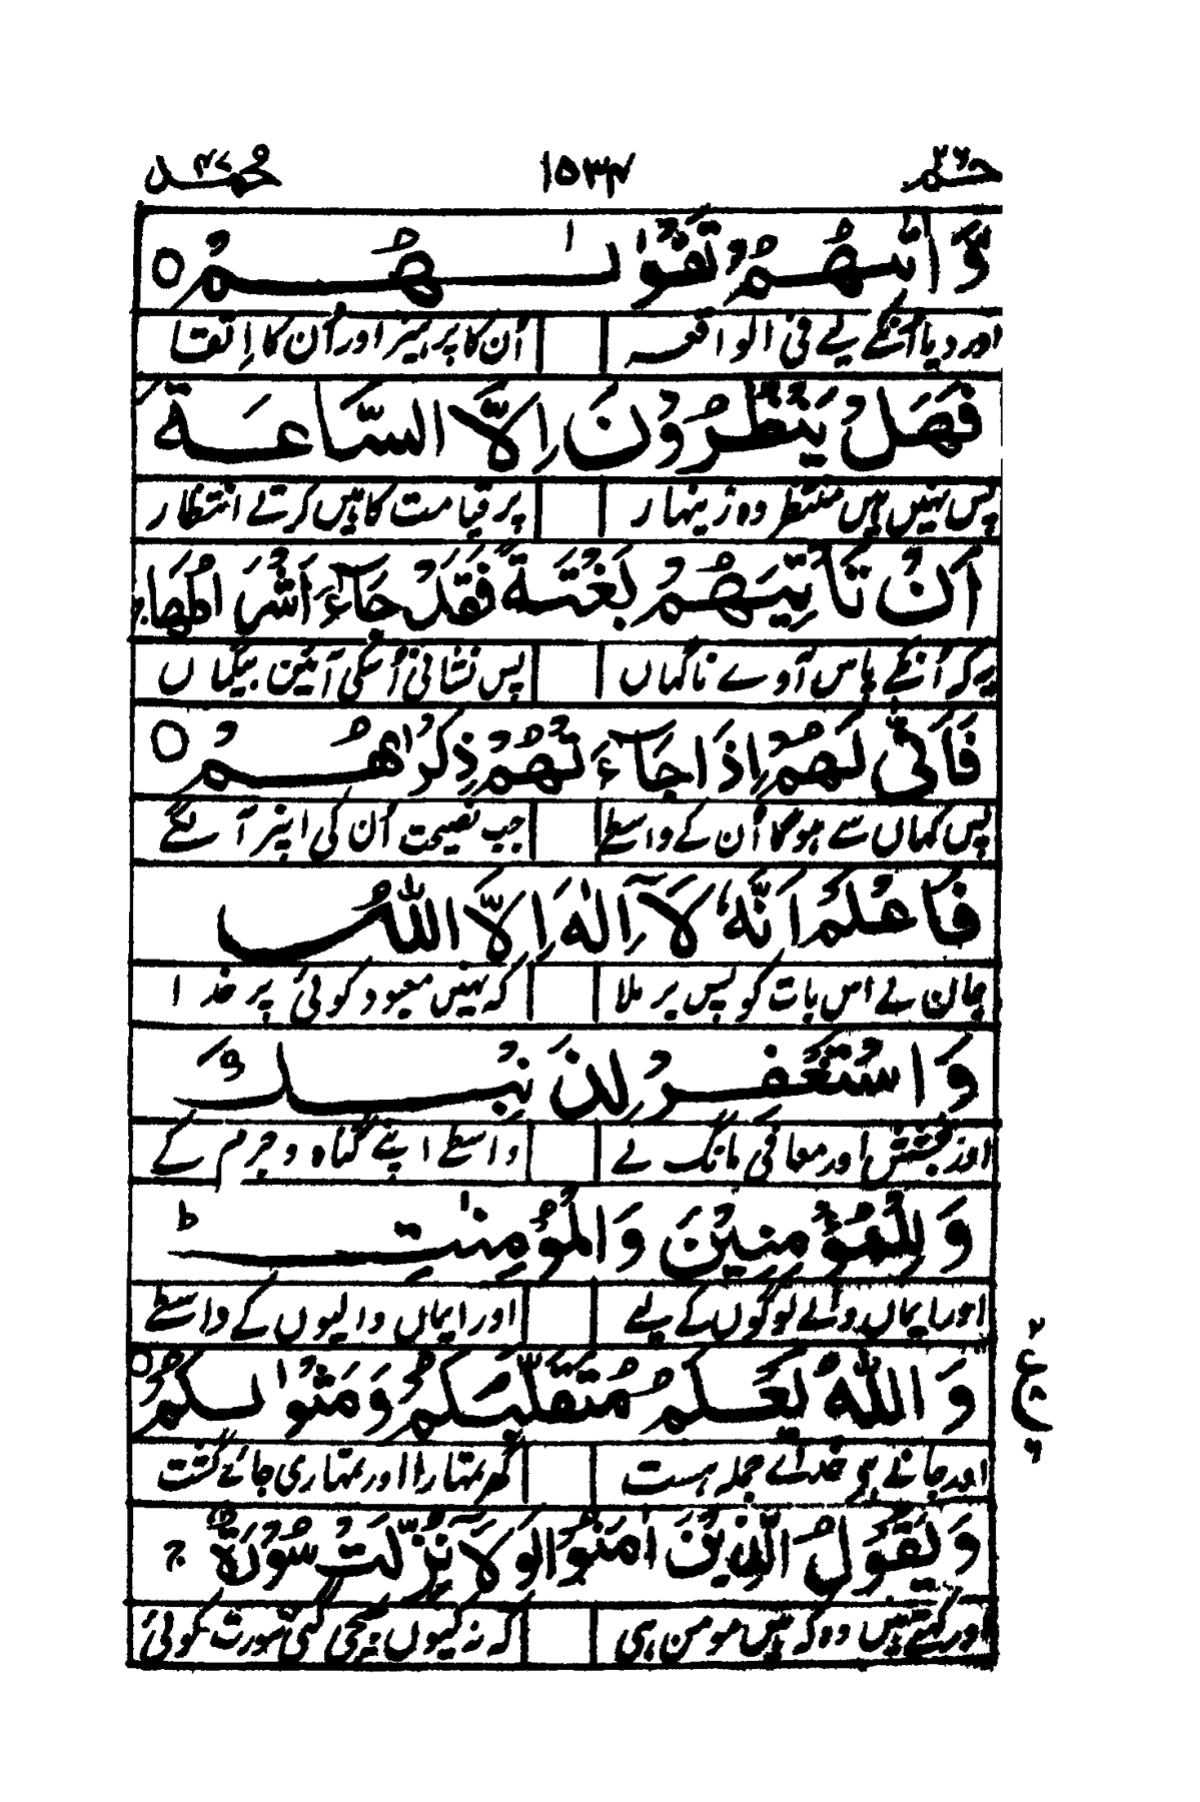 حٰمٓ ٢٦ ١٥٣٤ محمد ٤٧
وَّاٰتٰىهُمْ تَقْوٰىهُمْ ○
اور دیا اُنکے لیے فی الواقعہ اُن کا پرہیز اور اُن کا اِتقا
فَهَلْ يَنْظُرُوْنَ اِلَّا السَّاعَةَ
پس نہیں ہیں منتظر وہ زینہار پر قیامت کا ہیں کرتے انتظار
اَنْ تَاْتِيَهُمْ بَغْتَةً فَقَدْ جَآءَ اَشْرَاطُهَا
یہ کہ اُنکے پاس آوے ناگہاں پس نشانی اُسکی آئین بیگماں
فَاَنّٰى لَهُمْ اِذَا جَآءَتْهُمْ ذِكْرٰىهُمْ ○
پس کہاں سے ہوگا اُن کے واسطے جب نصیحت اُن کی اپنر آ لگے
فَاعْلَمْ اَنَّهٗ لَآ اِلٰهَ اِلَّا اللّٰهُ
جان لے اس بات کو پس بر ملا کہ نہیں معبود کوئی پر خدا
وَاسْتَغْفِرْ لِذَنْۢبِكَ
اور بخشش اور معافی مانگ لے واسطے اپنے گناہ و جرم کے
وَلِلْمُؤْمِنِيْنَ وَالْمُؤْمِنٰتِ ؕ
اور ایماں والے لوگوں کے لیے اور ایماں والیوں کے واسطے
وَاللّٰهُ يَعْلَمُ مُتَقَلَّبَكُمْ وَمَثْوٰىكُمْ ○
اور جانے ہے خدائے جملہ ہست گھر تمہارا اور تمہاری جائے گشت
٢ ع ٨ ٦
وَيَقُوْلُ الَّذِيْنَ اٰمَنُوْا لَوْلَا نُزِّلَتْ سُوْرَةٌ ج
اور کہتے ہیں وہ کہ ہیں مومن ہی کہ نہ کیوں بھیجی گئی سورت کوئی